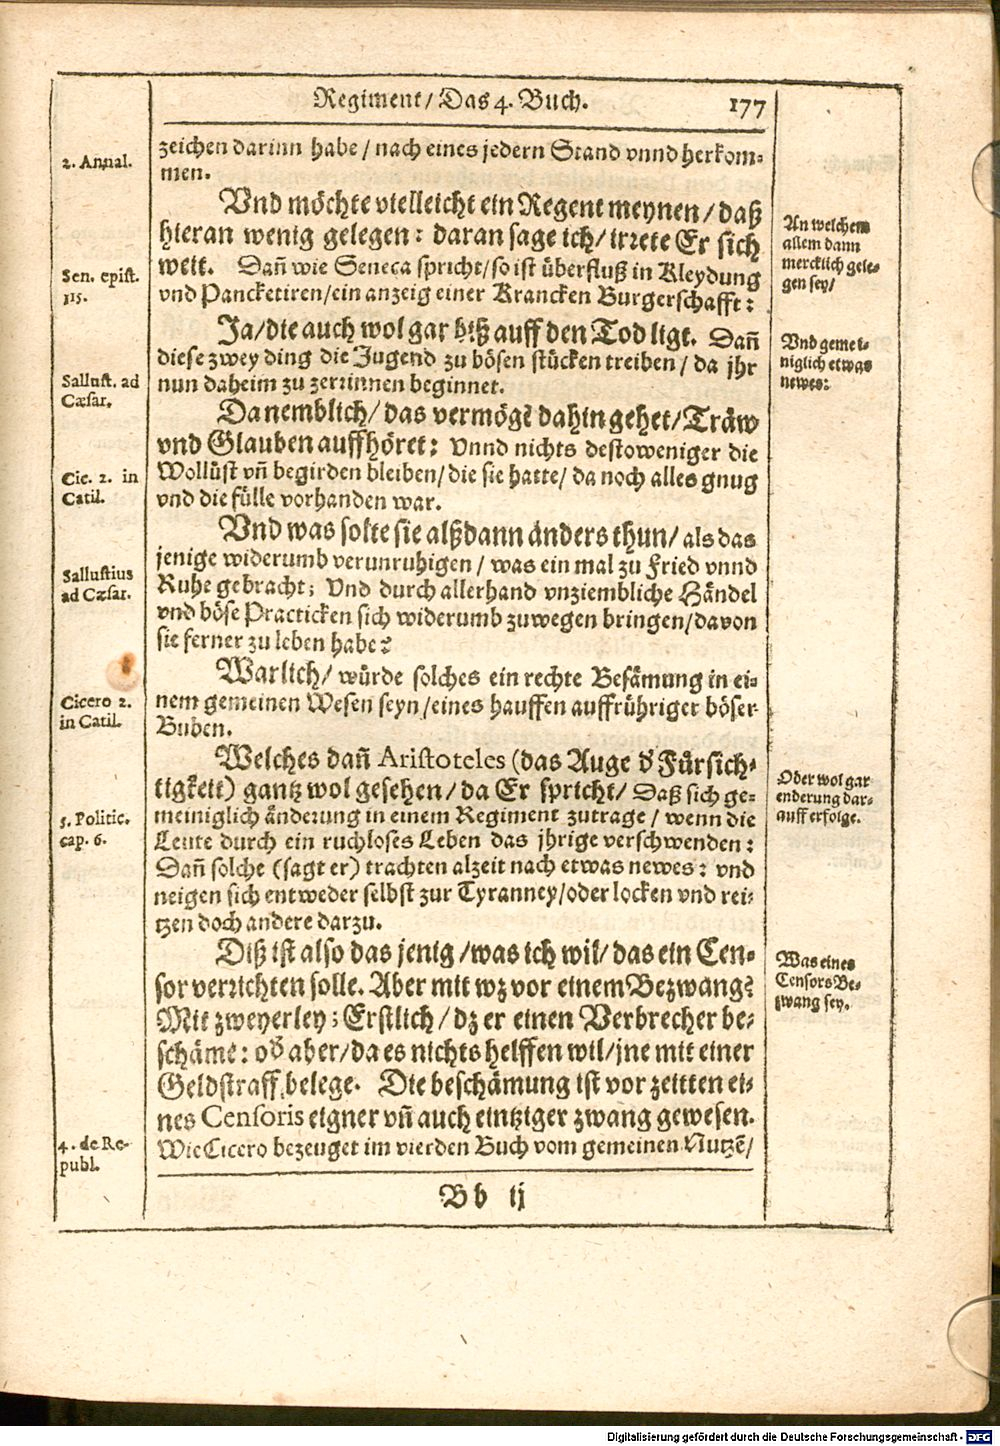 Regiment/ Das 4. Buch. 177
zeichen darinn habe / nach eines jedern Stand vnnd herkom-
men.
2. Annal.
Vnd möchte vielleicht ein Regent meynen/ daß
hieran wenig gelegen: daran sage ich/ irrete Er sich
weit. Dañ wie Seneca spricht/ so ist überfluß in Kleydung
vnd Pancketiren/ ein anzeig einer Krancken Burgerschafft:
Sen. epist.
115.
An welchem
allem dann
mercklich gele-
gen sey/
Ja/ die auch wol gar biß auff den Tod ligt. Dañ
diese zwey ding die Jugend zu bösen stücken treiben / da jhr
nun daheim zu zerrinnen beginnet.
Sallust. ad
Cæsar.
Vnd gemei-
niglich etwas
newes:
Da nemblich/ das vermögē dahin gehet/ Träw
vnd Glauben auffhöret: Vnnd nichts destoweniger die
Wollüst vñ begirden bleiben/ die sie hatte/ da noch alles gnug
vnd die fülle vorhanden war.
Cic. 2. in
Catil.
Vnd was solte sie alßdann änders thun/ als das
jenige widerumb verunruhigen / was ein mal zu Fried vnnd
Ruhe gebracht; Vnd durch allerhand vnziembliche Händel
vnd böse Practicken sich widerumb zuwegen bringen/ davon
sie ferner zu leben habe?
Sallustius
ad Cæsar.
Warlich/ würde solches ein rechte Besämung in ei-
nem gemeinen Wesen seyn/ eines hauffen auffrühriger böser
Buben.
Cicero 2.
in Catil.
Welches dañ Aristoteles (das Auge d' Fürsich-
tigkeit) gantz wol gesehen/ da Er spricht/ Daß sich ge-
meiniglich änderung in einem Regiment zutrage / wenn die
Leute durch ein ruchloses Leben das jhrige verschwenden:
Dañ solche (sagt er) trachten alzeit nach etwas newes: vnd
neigen sich entweder selbst zur Tyranney/ oder locken vnd rei-
tzen doch andere darzu.
5. Politic.
cap. 6.
Oder wol gar
enderung dar-
auff erfolge.
Diß ist also das jenig / was ich wil/ das ein Cen-
sor verrichten solle. Aber mit wz vor einem Bezwang?
Mit zweyerley; Erstlich/ dz er einen Verbrecher be-
schäme: od' aber/ da es nichts helffen wil/ jne mit einer
Geldstraff belege. Die beschämung ist vor zeitten ei-
nes Censoris eigner vñ auch eintziger zwang gewesen.
Wie Cicero bezeuget im vierden Buch vom gemeinen Nutzē/
Was eines
Censors Be-
zwang sey.
4. de Re-
publ.
Bb ij
Digitalisierung gefördert durch die Deutsche Forschungsgemeinschaft - DFG